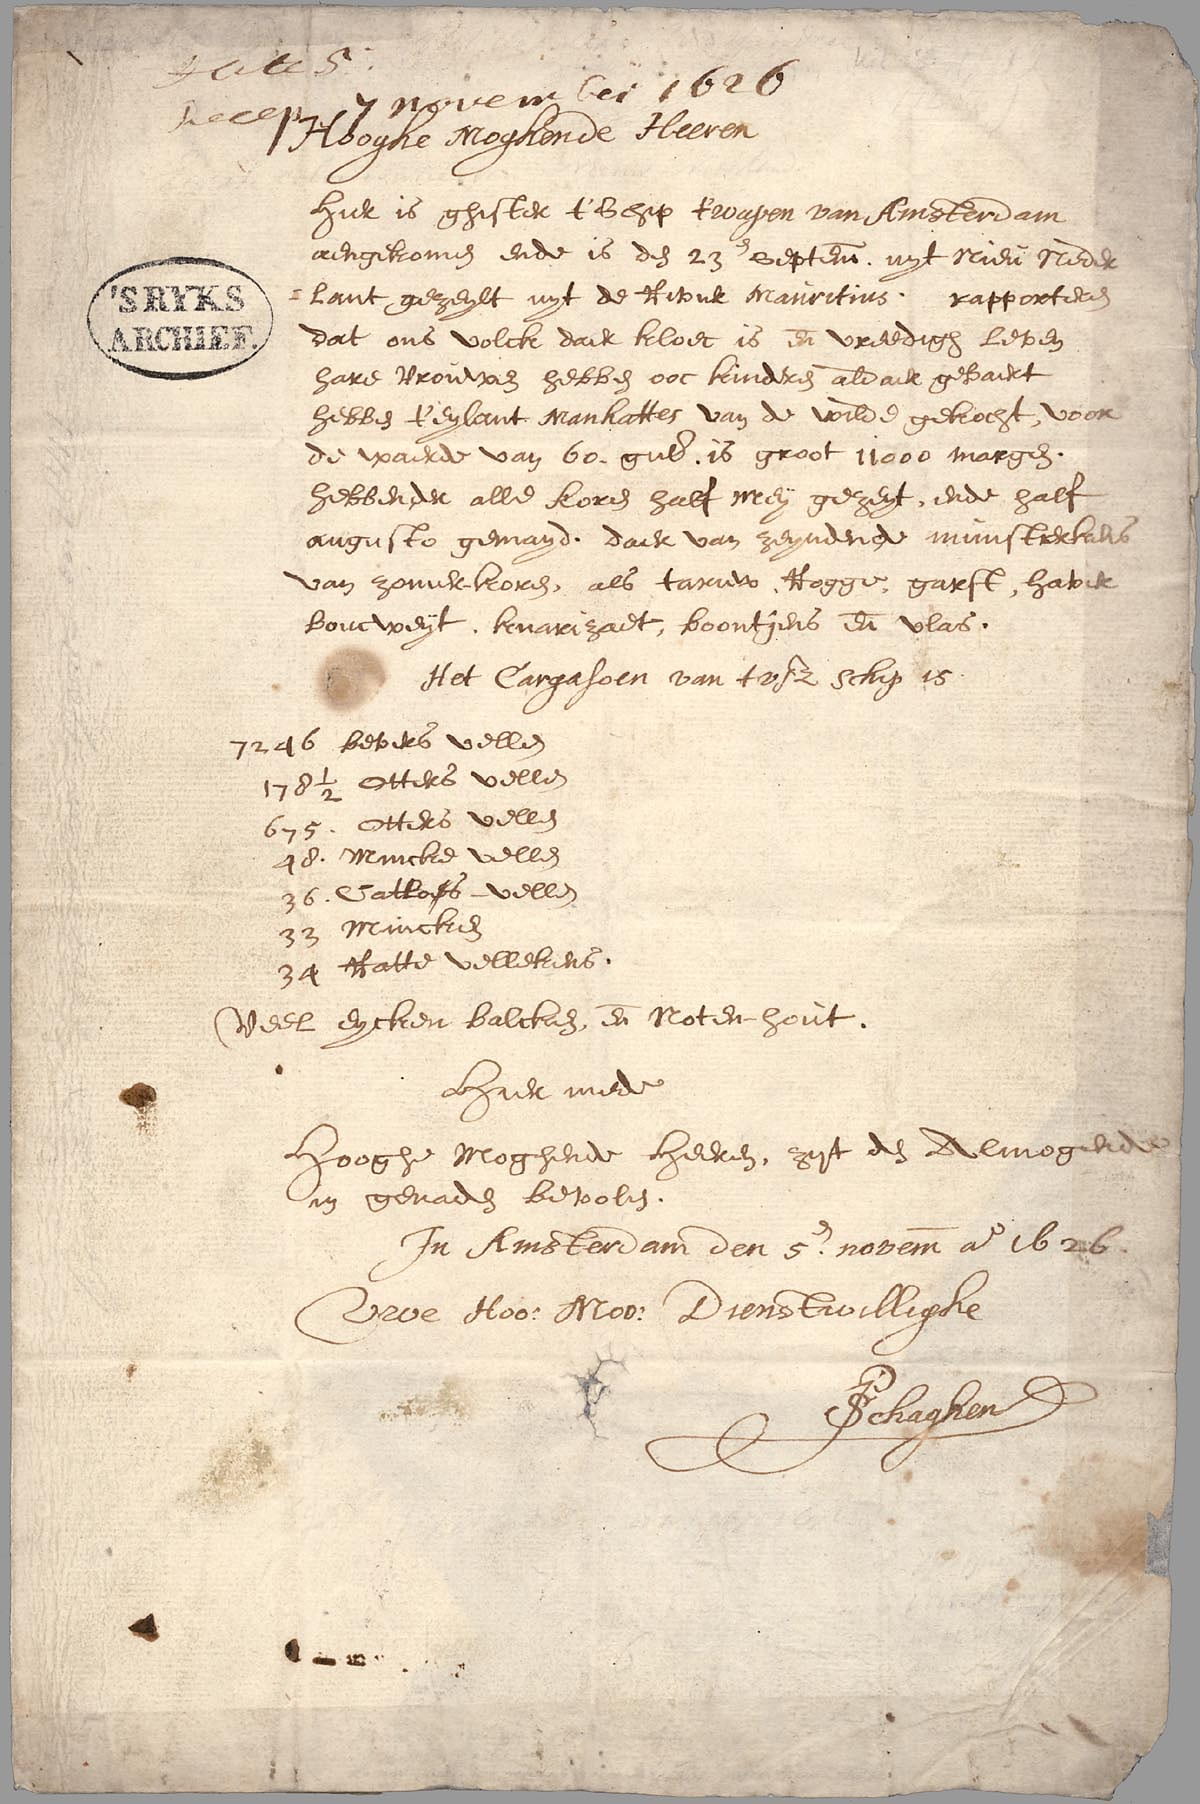 Recep. 7 november 1626
Hooghe Moghende Heeren
Hier is ghister t'Schip t'wapen van Amsterdam
aengekomen ende is den 23en septem. uyt Nieu Neder
=lant gezeylt uyt de Rivier Mauritius. rapporteren
dat ons volck daer kloec is en vreedigh leven
hare Vrouwen hebben ooc kinderen aldaer gebaert
hebben t'eylant Manhattes van de wilde gekocht, voor
de waerde van 60. guld. is groot 11000 margen.
hebbender alle koren half Mey gezeyt, ende half
augusto gemayd. daer van zeyndende munsterkens
van zomer-koren, als taruw, Rogge, garst, haver
boucweyt, knarizaet, boontjens en vlas.
Het Cargasoen van tvsz schip is
7246 bevers vellen
178½ Otters vellen
675. Otters vellen
48. Mincke vellen
36. Catloss-vellen
33 Mincken
34 Ratte vellekens.
Veel eycken balcken, en Noten-hout.
Hier mede
Hooghe Moghende Heeren, zyt den Almogende
in genaden bevolen.
In Amsterdam den 5en novem ao 1626.
Uwe Hoo: Moo: Dienstwillighe
P Schaghen
'SRYKS
ARCHIEF.